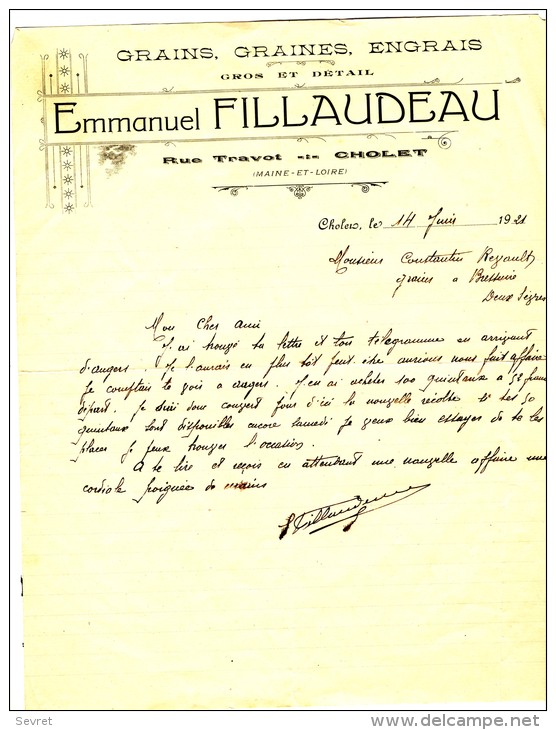 GRAINS, GRAINES, ENGRAIS
GROS ET DÉTAIL
Emmanuel FILLAUDEAU
Rue Travot CHOLET
(MAINE-ET-LOIRE)
Cholet, le 14 Juin 1921
Monsieur Constantin
grains a Bressuire
Deux Sèvres
Mon Cher Ami
J'ai trouzé ta lettre et ton télégramme en arrivant
d'angers. Je l'aurais eu plus tôt peut être aurions nous fait affaire
Je comptais te voir a angers. J'en ai acheter 100 quintaux a 52 francs
départ. Je suis donc couvert d'ici la nouzelle récolte si tes 50
quintaux sont disponibles encore samedi je veux bien essayer de te les
placer si je peux trouzer l'occasion.
A te lire et reçois en attendant une nouzelle affaire une
cordiale poignée de mains
Fillaudeau
Sevret
delcampe.net